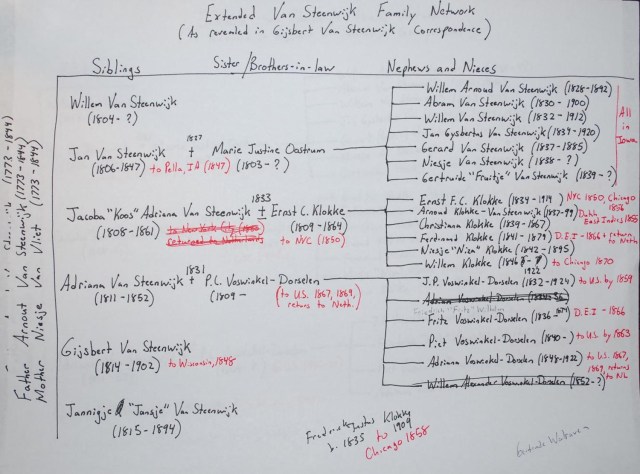 Extended Van Steenwijk Family Network
(As revealed in Gijsbert Van Steenwijk Correspondence)
Siblings Sister/Brothers-in-law Nephews and Nieces
Father Arnout Van Steenwijk (1773-1844)
Mother Niesje Van Vliet (1773-1844)
Willem Van Steenwijk
(1804-?)
1827
Jan Van Steenwijk + Marie Justine Oostrum
(1806-1847) to Pella, IA (1847) (1803-?)
Willem Arnoud Van Steenwijk (1828-1892)
Abram Van Steenwijk (1830-1900)
Willem Van Steenwijk (1832-1912)
Jan Gysbertus Van Steenwijk (1834-1920)
Gerard Van Steenwijk (1837-1885)
Niesje Van Steenwijk (1838-?)
Gertruide "Fruitje" Van Steenwijk (1839-?)
All in Iowa
1833
Jacoba "Koos" Adriana Van Steenwijk + Ernst C. Klokke
(1808-1861) (1809-1864)
returned to Netherlands to NYC (1850)
Ernst F.C. Klokke (1834-1914) NYC 1850, Chicago 1856
Arnoud Klokke-Van Steenwijk (1837-99) Dutch East Indies 1855
Christiana Klokke (1839-1867)
Ferdinand Klokke (1841-1879) D.E.I-1866 + returns to Neth.
Niesje "Nien" Klokke (1842-1895)
Willem Klokke 1922) to Chicago 1870
1831
Adriana Van Steenwijk + P.C. Voswinkel-Dorselen
(1811-1852) (1809- (to U.S. 1867, 1869, returns to Neth.)
J.P. Voswinkel-Dorselen (1832-1924) to U.S. by 1859
Adriana Voswinkel-Dorselen
Friedrich "Fritz" Wilhelm
Fritz Voswinkel-Dorselen (1836- D.E.I-1866
Piet Voswinkel-Dorselen (1840-) to U.S. by 1863
Adriana Voswinkel-Dorselen (1848-1922) to U.S. 1867, 1869, returns to NL
Willem Alexander Voswinkel-Dorselen (1852-?)
Gijsbert Van Steenwijk
(1814-1902) to Wisconsin, 1848
Jannigje "Jansje" Van Steenwijk
(1815-1894)
Frederick Justus Klokke
b. 1835 to 1909
Chicago 1858